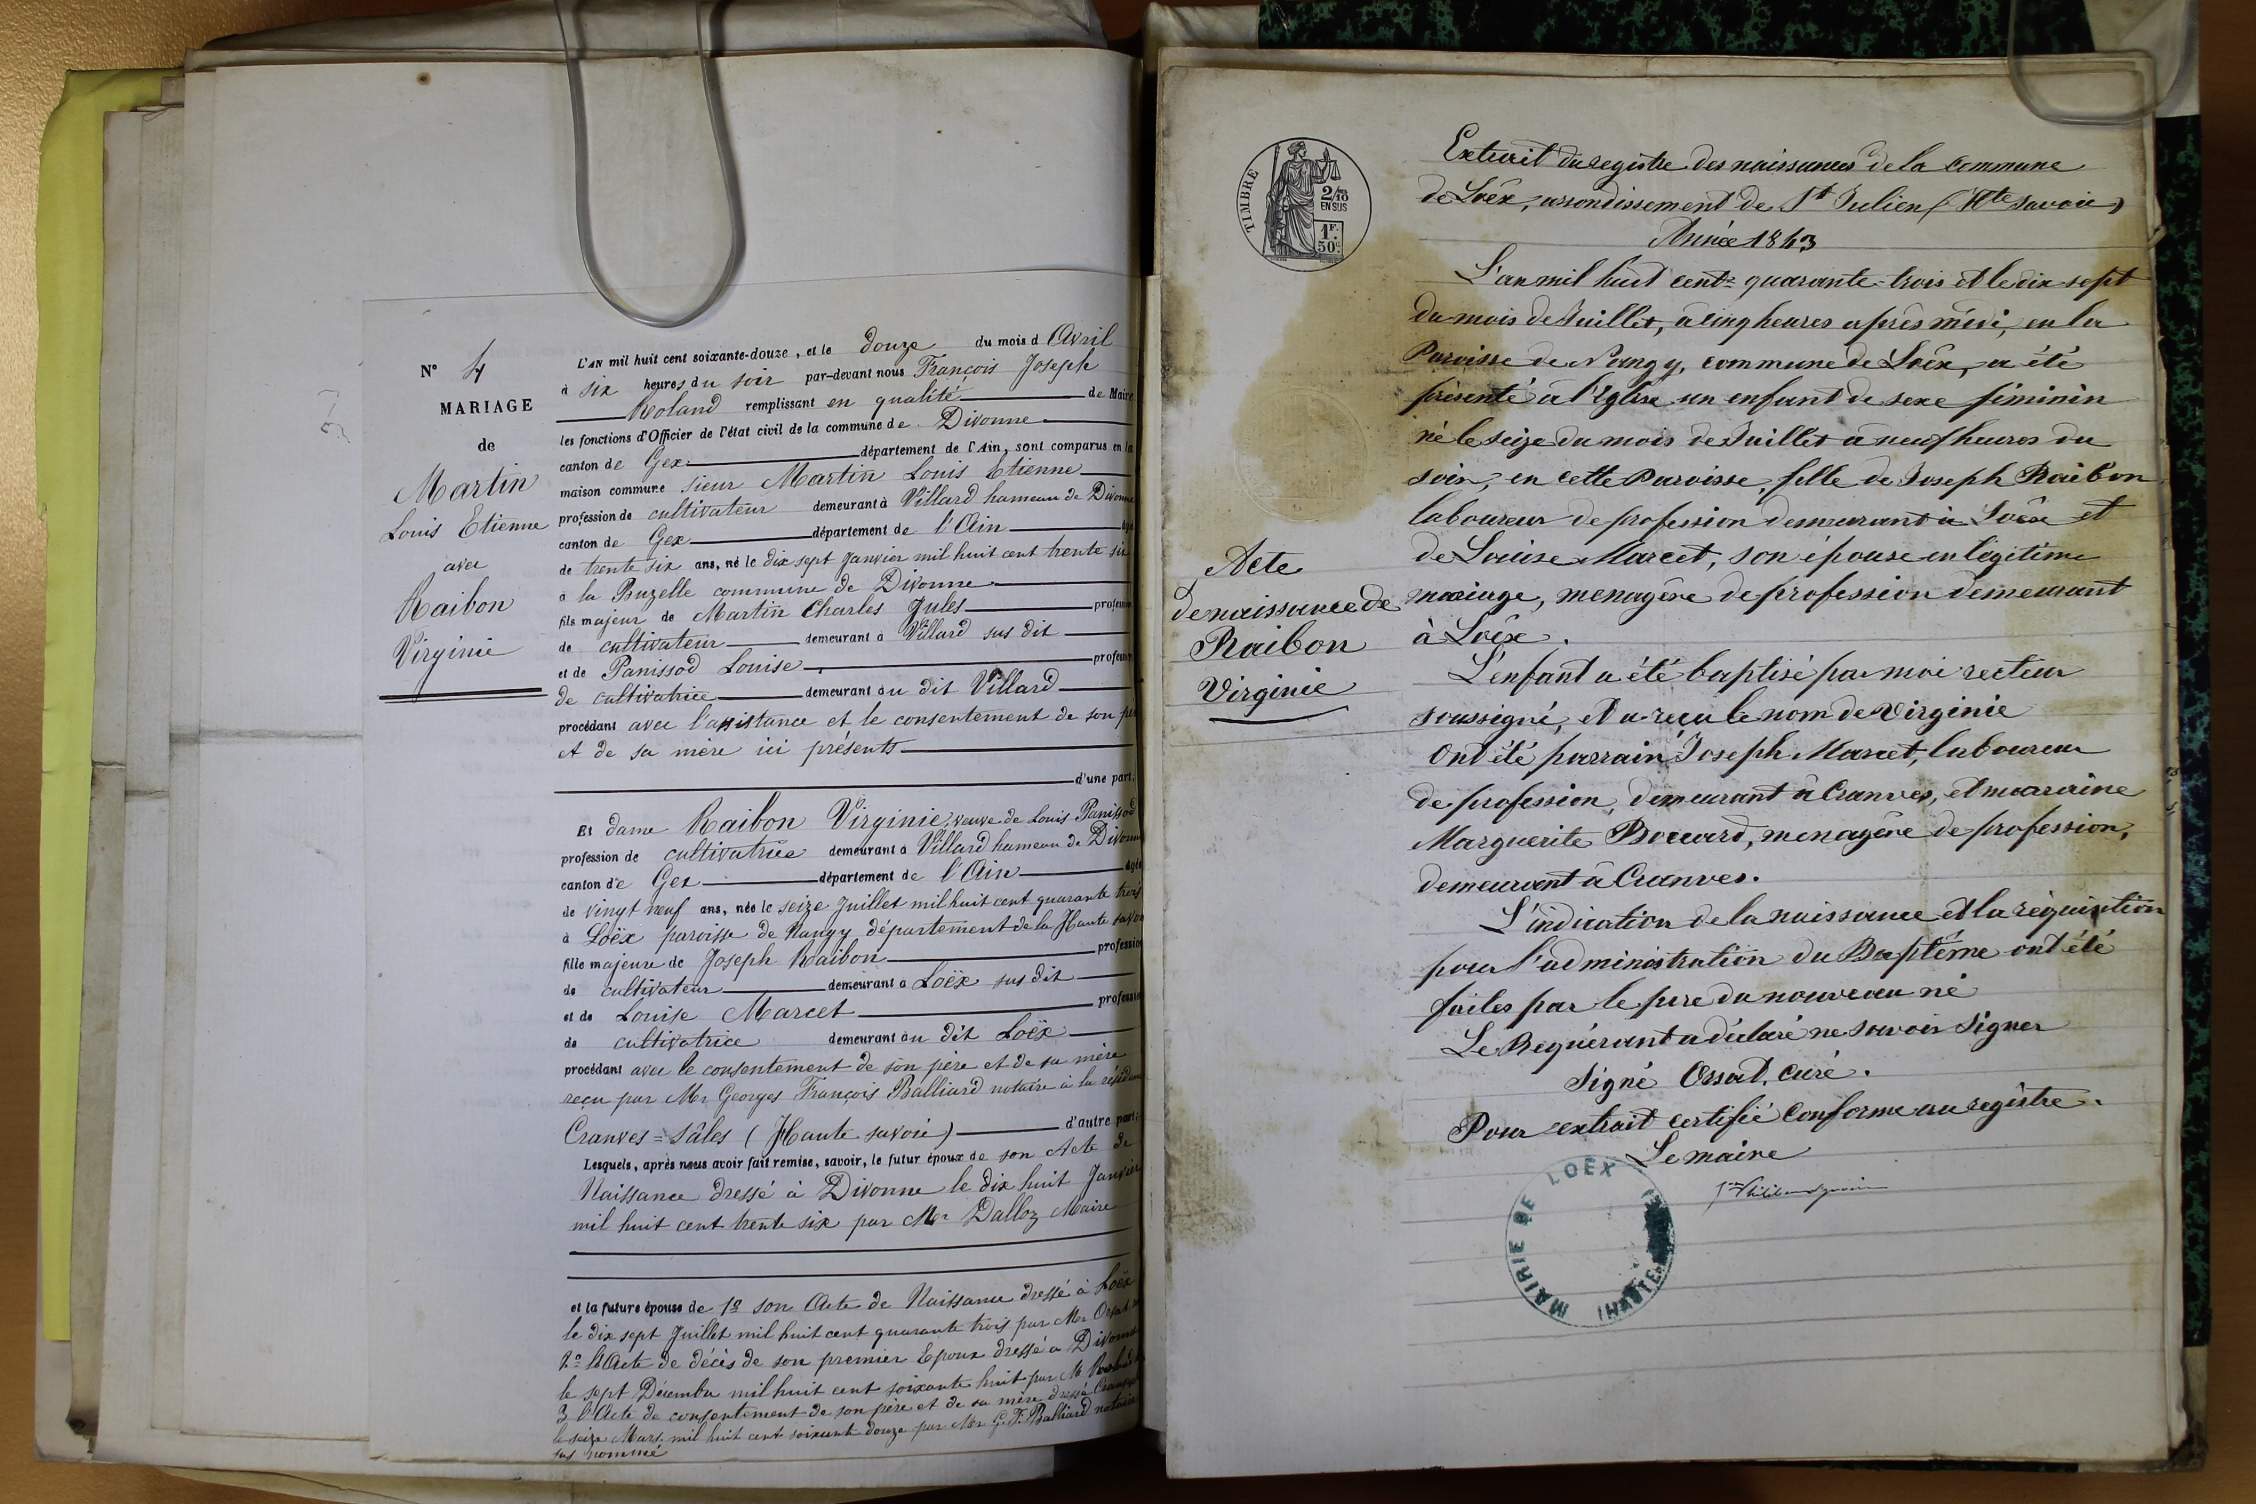 N° 4
MARIAGE
de
Martin
Louis Etienne
avec
Raibon
Virginie
L'AN mil huit cent soixante-douze, et le douze du mois d Avril
à six heures du soir par-devant nous François Joseph
Roland remplissant en qualité de Maire
les fonctions d'Officier de l'état civil de la commune de Divonne
canton de Gex département de l'Ain, sont comparus en la
maison commune sieur Martin Louis Etienne
profession de cultivateur demeurant à Villard hameau de Divonne
canton de Gex département de l'Ain âgé
de trente six ans, né le dix sept Janvier mil huit cent trente six
à la Buzelle commune de Divonne
fils majeur de Martin Charles Jules profession
de cultivateur demeurant à Villard sus dit
et de Panissod Louise profession
de cultivatrice demeurant au dit Villard
procédant avec l'assistance et le consentement de son père
et de sa mère ici présents
d'une part.
Et dame Raibon Virginie, veuve de Louis Panissod
profession de cultivatrice demeurant à Villard hameau de Divonne
canton de Gex département de l'Ain âgée
de vingt neuf ans, née le seize Juillet mil huit cent quarante trois
à Loëx paroisse de Nangy département de la Haute savoie
fille majeure de Joseph Raibon profession
de cultivateur demeurant à Loëx sus dit
et de Louise Marcet profession
de cultivatrice demeurant au dit Loëx
procédant avec le consentement de son père et de sa mère
reçu par Mr Georges François Balliard notaire à la résidence
Cranves=Sâles (Haute savoie) d'autre part;
Lesquels, après nous avoir fait remise, savoir, le futur époux de son Acte de
Naissance dressé à Divonne le dix huit Janvier
mil huit cent trente six par Mr Dalloz Maire
et la future épouse de 1° son Acte de Naissance dressé à Loëx
le dix sept Juillet mil huit cent quarante trois par Mr Orsat
2° l'Acte de décès de son premier Epoux dressé à Divonne
le sept Décembre mil huit cent soixante huit par Mr Roland
3 l'Acte de consentement de son père et de sa mère dressé à Cranves
le seize Mars mil huit cent soixante douze par Mr G. F. Balliard notaire
sus nommé
TIMBRE
2/10
EN SUS
1F.
50c.
Acte
de naissance de
Raibon
Virginie
Extrait du registre des naissances de la commune
de Loëx, arrondissement de St Julien (Hte savoie)
Année 1843
L'an mil huit cent quarante-trois et le dix sept
du mois de Juillet, à cinq heures après midi, en la
Paroisse de Nangy, commune de Loëx, a été
présenté à l'Eglise un enfant de sexe féminin
né le seize du mois de Juillet à neuf heures du
soir, en cette Paroisse, fille de Joseph Raibon
laboureur de profession demeurant à Loëx et
de Louise Marcet, son épouse en légitime
mariage, menagère de profession demeurant
à Loëx.
L'enfant a été baptisé par moi recteur
soussigné, et a reçu le nom de Virginie
Ont été parrain Joseph Marcet, laboureur
de profession, demeurant à Cranves, et marraine
Marguerite Boccard, menagère de profession,
demeurant à Cranves.
L'indication de la naissance et la réquisition
pour l'administration du Baptême ont été
faites par le pere du nouveau né
Le Requérant a déclaré ne savoir signer
Signé Orsat, curé.
Pour extrait certifié conforme au registre.
Le maire
MAIRIE DE LOEX
HAUTE